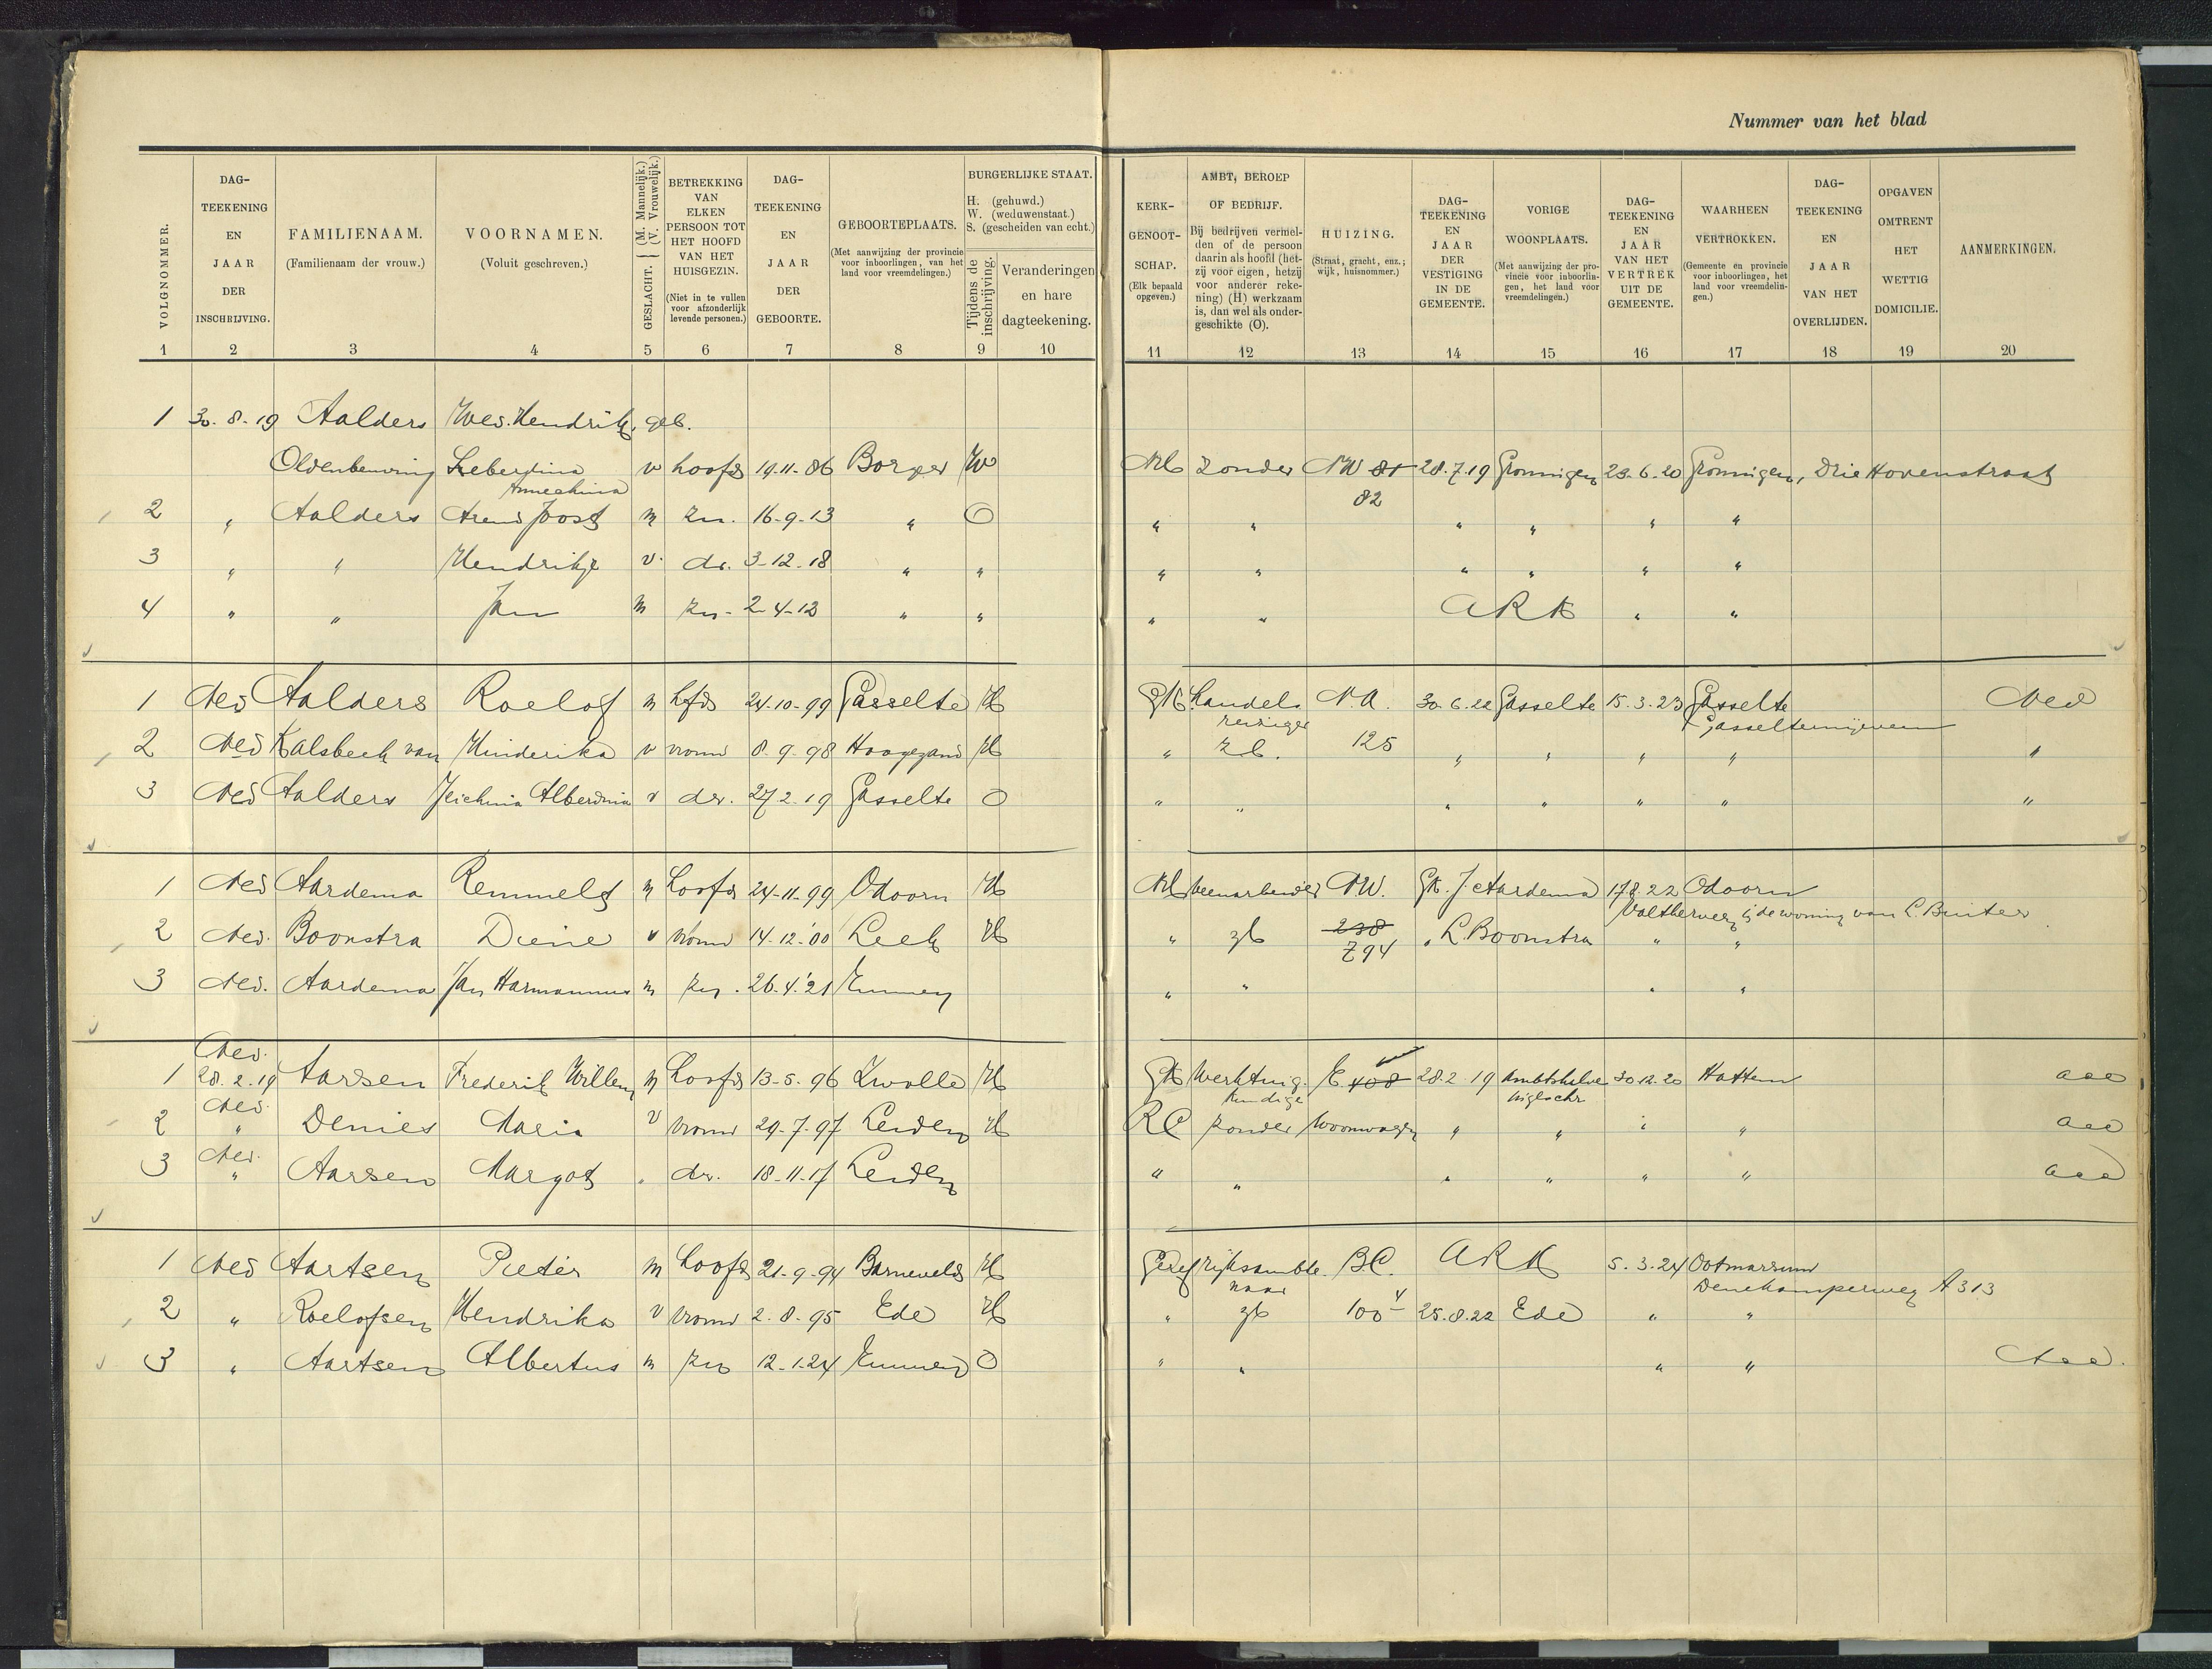 Nummer van het blad
VOLGNOMMER. 1
DAG-TEEKENING EN JAAR DER INSCHRIJVING. 2
FAMILIENAAM. (Familienaam der vrouw.) 3
VOORNAMEN. (Voluit geschreven.) 4
GESLACHT. (M. Mannelijk.) (V. Vrouwelijk.) 5
BETREKKING VAN ELKEN PERSOON TOT HET HOOFD VAN HET HUISGEZIN. (Niet in te vullen voor afzonderlijk levende personen.) 6
DAG-TEEKENING EN JAAR DER GEBOORTE. 7
GEBOORTEPLAATS. (Met aanwijzing der provincie voor inboorlingen, van het land voor vreemdelingen.) 8
BURGERLIJKE STAAT. H. (gehuwd.) W. (weduwenstaat.) S. (gescheiden van echt.)
Tijdens de inschrijving. 9
Veranderingen en hare dagteekening. 10
KERK-GENOOT-SCHAP. (Elk bepaald opgeven.) 11
AMBT, BEROEP OF BEDRIJF. Bij bedrijven vermelden of de persoon daarin als hoofd (hetzij voor eigen, hetzij voor anderer rekening) (H) werkzaam is, dan wel als ondergeschikte (O). 12
HUIZING. (Straat, gracht, enz.; wijk, huisnommer.) 13
DAG-TEEKENING EN JAAR DER VESTIGING IN DE GEMEENTE. 14
VORIGE WOONPLAATS. (Met aanwijzing der provincie voor inboorlingen, het land voor vreemdelingen.) 15
DAG-TEEKENING EN JAAR VAN HET VERTREK UIT DE GEMEENTE. 16
WAARHEEN VERTROKKEN. (Gemeente en provincie voor inboorlingen, het land voor vreemdelingen.) 17
DAG-TEEKENING EN JAAR VAN HET OVERLIJDEN. 18
OPGAVEN OMTRENT HET WETTIG DOMICILIE. 19
AANMERKINGEN. 20
1 30-8-19 Aalders Wed. Hendrik, geb.
Oldenbeuving v hoofd 19-11-86 Borger W NH zonder NW 81 28-7-19 Groningen 23-6-20 Groningen, Drie Hovenstraat
Annechina 82
2 " Aalders Arend Joost m zn. 16-9-13 " O " " " " " "
3 " " Hendrikje v. dr. 3-12-18 " " " " " " " "
4 " " Jan m zn. 2-4-12 " " " " ARK " "
1 Ned Aalders Roelof m hfd 24-10-99 Gasselte H GK handels N.A. 30-6-22 Gasselte 15-3-23 Gasselte Ned
reiziger Gasselternijveen
2 Ned Kalsbeek van Hinderika v vrouw 8-9-98 Hoogezand H " zb. 125 " " " " "
3 Ned Aalders Jeichina Alberdina v dr. 27-2-19 Gasselte O " " " " " " "
1 Ned Aardema Remmelt m hoofd 24-11-99 Odoorn H NH veenarbeider NW. GK. J. Aardema 17-8-22 Odoorn
Valtherveen bij de woning van L. Buiter
2 Ned. Boonstra Diene v vrouw 14-12-'00 Leek H " zb 238 " L. Boonstra " "
Z94
3 Ned. Aardema Jan Harmannus m zn. 26-4-'21 Emmen " " " "
Ned.
1 28-2-19 Aarsen Frederik Willem m hoofd 13-5-96 Zwolle H GK Werktuig- E 408 28-2-19 Ambtshalve 30-12-20 Hattem
kundige ingeschr
Ned.
2 " Denies Maria v vrouw 29-7-97 Leiden H RC zonder Woonwagen " " " "
Ned.
3 " Aarsen Margot " dr. 18-11-17 Leiden " " " " " "
1 Ned Aartsen Pieter m hoofd 21-9-94 Barneveld H Geref rijksambte- BC. ARK 5-3-24 Ootmarsum
naar Denekamperweg A313
2 " Roelofsen Hendrika v vrouw 2-8-95 Ede H " zb 100 4 25-8-22 Ede " "
3 " Aartsen Albertus m zn 12-1-24 Emmen O " " " "